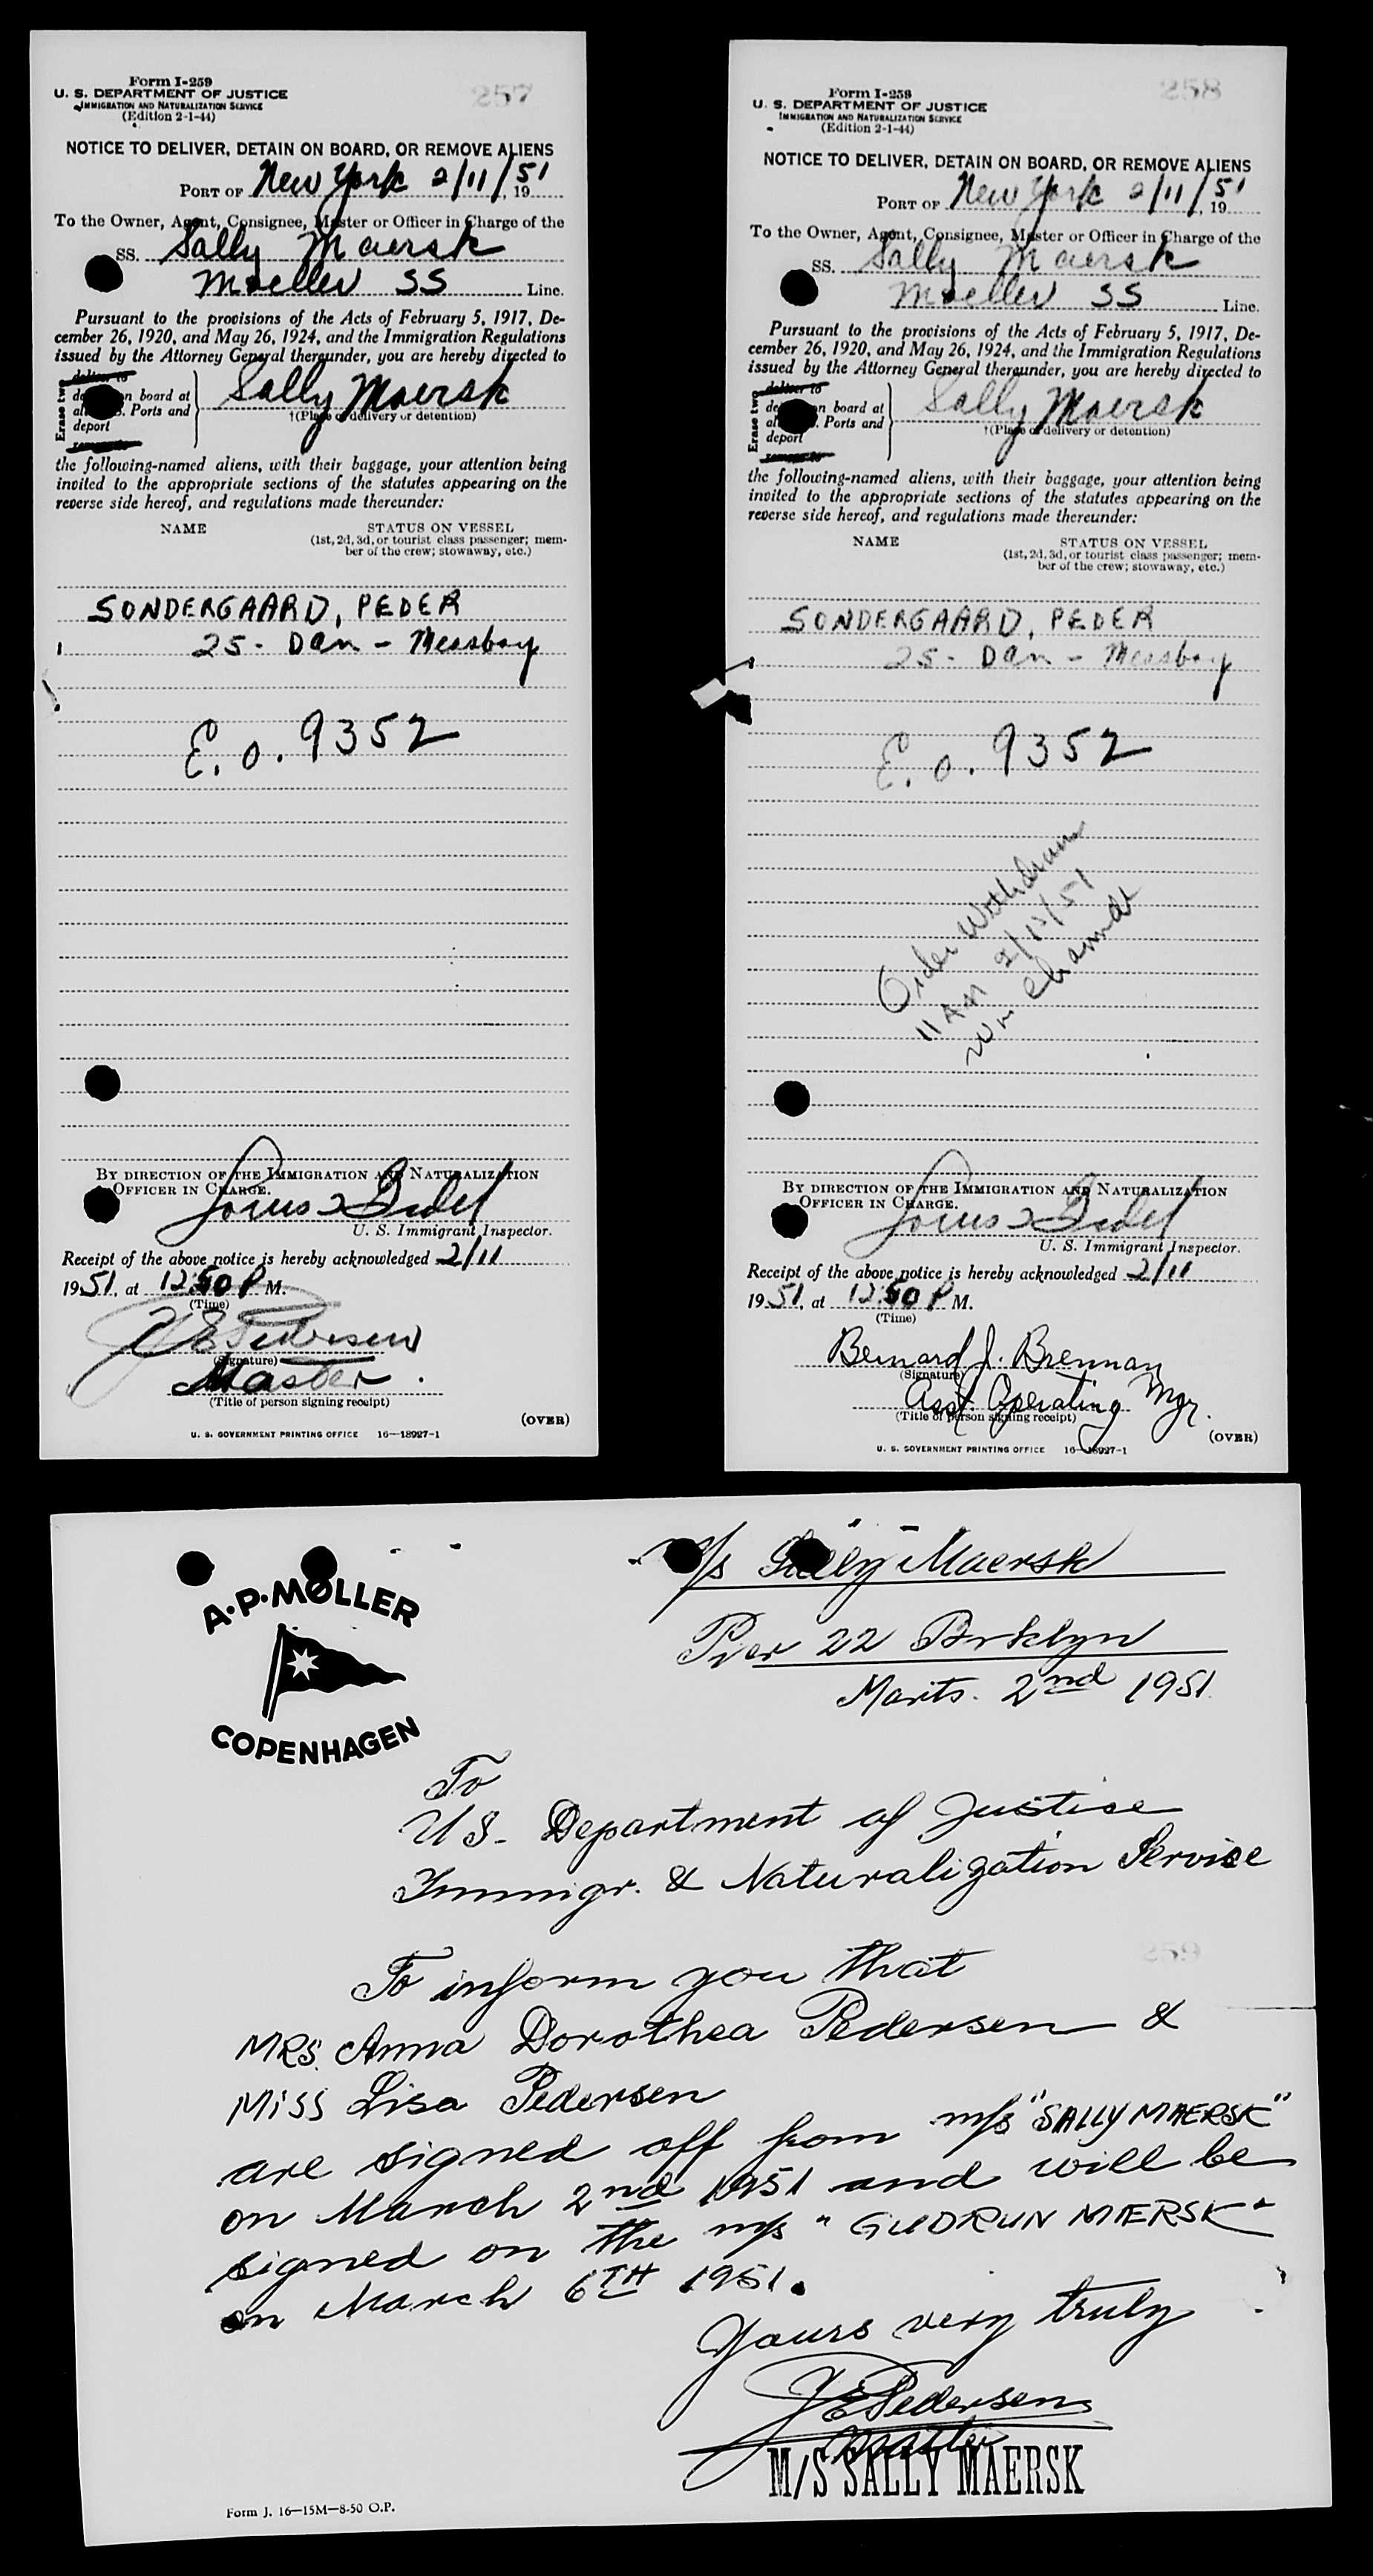 Form I-259
U. S. DEPARTMENT OF JUSTICE
IMMIGRATION AND NATURALIZATION SERVICE
(Edition 2-1-44)
257
NOTICE TO DELIVER, DETAIN ON BOARD, OR REMOVE ALIENS
PORT OF New York 2/11/, 1951
To the Owner, Agent, Consignee, Master or Officer in Charge of the
SS. Sally Maersk
Moeller SS Line.
Pursuant to the provisions of the Acts of February 5, 1917, De-
cember 26, 1920, and May 26, 1924, and the Immigration Regulations
issued by the Attorney General thereunder, you are hereby directed to
Erase two
deliver to
n board at
Ports and
deport
remove to
Sally Maersk
†(Place of delivery or detention)
the following-named aliens, with their baggage, your attention being
invited to the appropriate sections of the statutes appearing on the
reverse side hereof, and regulations made thereunder:
NAME STATUS ON VESSEL
(1st, 2d, 3d, or tourist class passenger; mem-
ber of the crew; stowaway, etc.)
SONDERGAARD, PEDER
25 - Dan - Messboy
E. O. 9352
BY DIRECTION OF THE IMMIGRATION AND NATURALIZATION
OFFICER IN CHARGE.
U. S. Immigrant Inspector.
Receipt of the above notice is hereby acknowledged 2/11
1951, at 12:50 P M.
(Time)
J E Pedersen
(Signature)
Master.
(Title of person signing receipt)
(OVER)
U. S. GOVERNMENT PRINTING OFFICE 16—18927-1
Form I-259
U. S. DEPARTMENT OF JUSTICE
IMMIGRATION AND NATURALIZATION SERVICE
(Edition 2-1-44)
258
NOTICE TO DELIVER, DETAIN ON BOARD, OR REMOVE ALIENS
PORT OF New York 2/11/, 1951
To the Owner, Agent, Consignee, Master or Officer in Charge of the
SS. Sally Maersk
Moeller SS Line.
Pursuant to the provisions of the Acts of February 5, 1917, De-
cember 26, 1920, and May 26, 1924, and the Immigration Regulations
issued by the Attorney General thereunder, you are hereby directed to
Erase two
deliver to
n board at
Ports and
deport
remove to
Sally Maersk
†(Place of delivery or detention)
the following-named aliens, with their baggage, your attention being
invited to the appropriate sections of the statutes appearing on the
reverse side hereof, and regulations made thereunder:
NAME STATUS ON VESSEL
(1st, 2d, 3d, or tourist class passenger; mem-
ber of the crew; stowaway, etc.)
SONDERGAARD, PEDER
25 - Dan - Messboy
E. O. 9352
Order Withdrawn
11 AM 2/12/51
Wm
BY DIRECTION OF THE IMMIGRATION AND NATURALIZATION
OFFICER IN CHARGE.
U. S. Immigrant Inspector.
Receipt of the above notice is hereby acknowledged 2/11
1951, at 12:50 P M.
(Time)
Bernard J. Brennan
(Signature)
Asst. Operating Mgr.
(Title of person signing receipt)
(OVER)
U. S. GOVERNMENT PRINTING OFFICE 16—18927-1
A·P·MØLLER
COPENHAGEN
M/s Sally Maersk
Pier 22 Brklyn
Marts. 2nd 1951.
To
US- Department of Justice
Immigr. & Naturalization Service
259
To inform you that
MRS. Anna Dorothea Pedersen &
MISS Lisa Pedersen
are signed off from m/s "SALLY MAERSK"
on March 2nd 1951 and will be
signed on the m/s "GUDRUN MAERSK"
on March 6TH 1951.
Yours very truly
J E Pedersen
Master
M/S SALLY MAERSK
Form J. 16—15M—8-50 O.P.